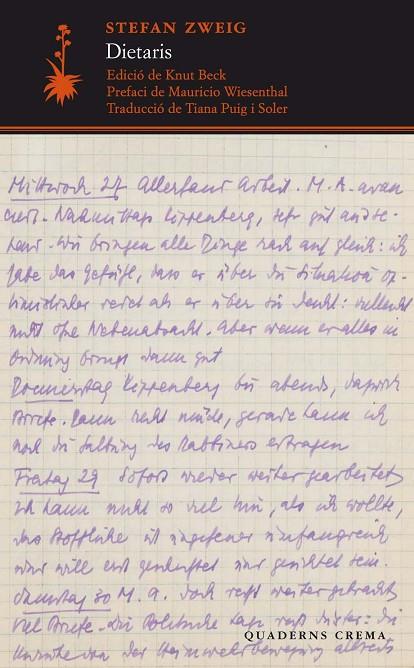 STEFAN ZWEIG
Dietaris
Edició de Knut Beck
Prefaci de Mauricio Wiesenthal
Traducció de Tiana Puig i Soler
Mittwoch 27 Allerhand Arbeit. M. A. avan
ciert. Nachmittags Kippenberg, sehr gut und se-
. Wir bringen alle Dinge rasch auf gleich: ich
habe das Gefühl, dass er über die Situation op-
timistischer als er über sie denkt: vielleicht
nicht ohne Nebenabsicht. Aber wenn er alles in
Ordnung bringt dann gut
Donnerstag Kippenberg bis abends, dazwisch
Briefe. Dann recht müde, gerade kann ich
noch die des Rabbiners ertragen
Freitag 29 Sofort wieder weitergearbeitet
Ich kann nicht so viel tun, als ich wollte,
das Stoffliche ist ungeheuer umfangreich
und will erst und gerichtet sein.
Samstag 30 M. A. doch weiter gebracht
Viel Briefe. Die Politische Lage düster: die
von der Heimwehrbewegung
QUADERNS CREMA